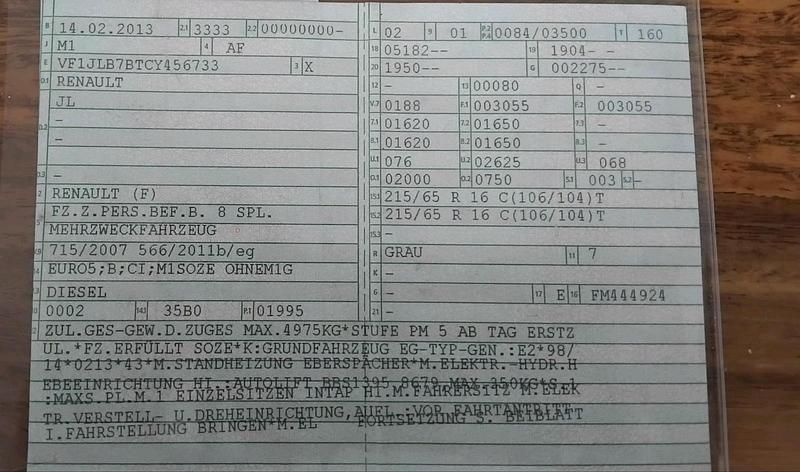 B 14.02.2013 2.1 3333 2.2 00000000-
J M1 4 AF
E VF1JLB7BTCY456733 3 X
D.1 RENAULT
JL
D.2 -
-
-
D.3 -
2 RENAULT (F)
5 FZ.Z.PERS.BEF.B. 8 SPL.
MEHRZWECKFAHRZEUG
V.9 715/2007 566/2011b/eg
14 EURO5;B;CI;M1SOZE OHNEM1G
P.3 DIESEL
10 0002 14.1 35B0 P.1 01995
L 02 9 01 P.2 P.4 0084/03500 T 160
18 05182-- 19 1904- -
20 1950-- G 002275--
12 - 13 00080 Q -
V.7 0188 F.1 003055 F.2 003055
7.1 01620 7.2 01650 7.3 -
8.1 01620 8.2 01650 8.3 -
U.1 076 U.2 02625 U.3 068
O.1 02000 O.2 0750 S.1 003 S.2 -
15.1 215/65 R 16 C(106/104)T
15.2 215/65 R 16 C(106/104)T
15.3 -
R GRAU 11 7
K -
6 - 17 E 16 FM444924
21 -
22 ZUL.GES-GEW.D.ZUGES MAX.4975KG*STUFE PM 5 AB TAG ERSTZ
UL.*FZ.ERFÜLLT SOZE*K:GRUNDFAHRZEUG EG-TYP-GEN.:E2*98/
14*0213*43*M.STANDHEIZUNG EBERSPÄCHER*M.ELEKTR.-HYDR.H
EBEEINRICHTUNG HI.:AUTOLIFT BBS1395 8679 MAX.350KG*S.1
:MAXS.PL.M.1 EINZELSITZEN INTAP HI.M.FAHRERSITZ M.ELEK
TR.VERSTELL- U.DREHEINRICHTUNG,AUFL.:VOR FAHRTANTRITT
I.FAHRSTELLUNG BRINGEN*M.EL FORTSETZUNG S. BEIBLATT